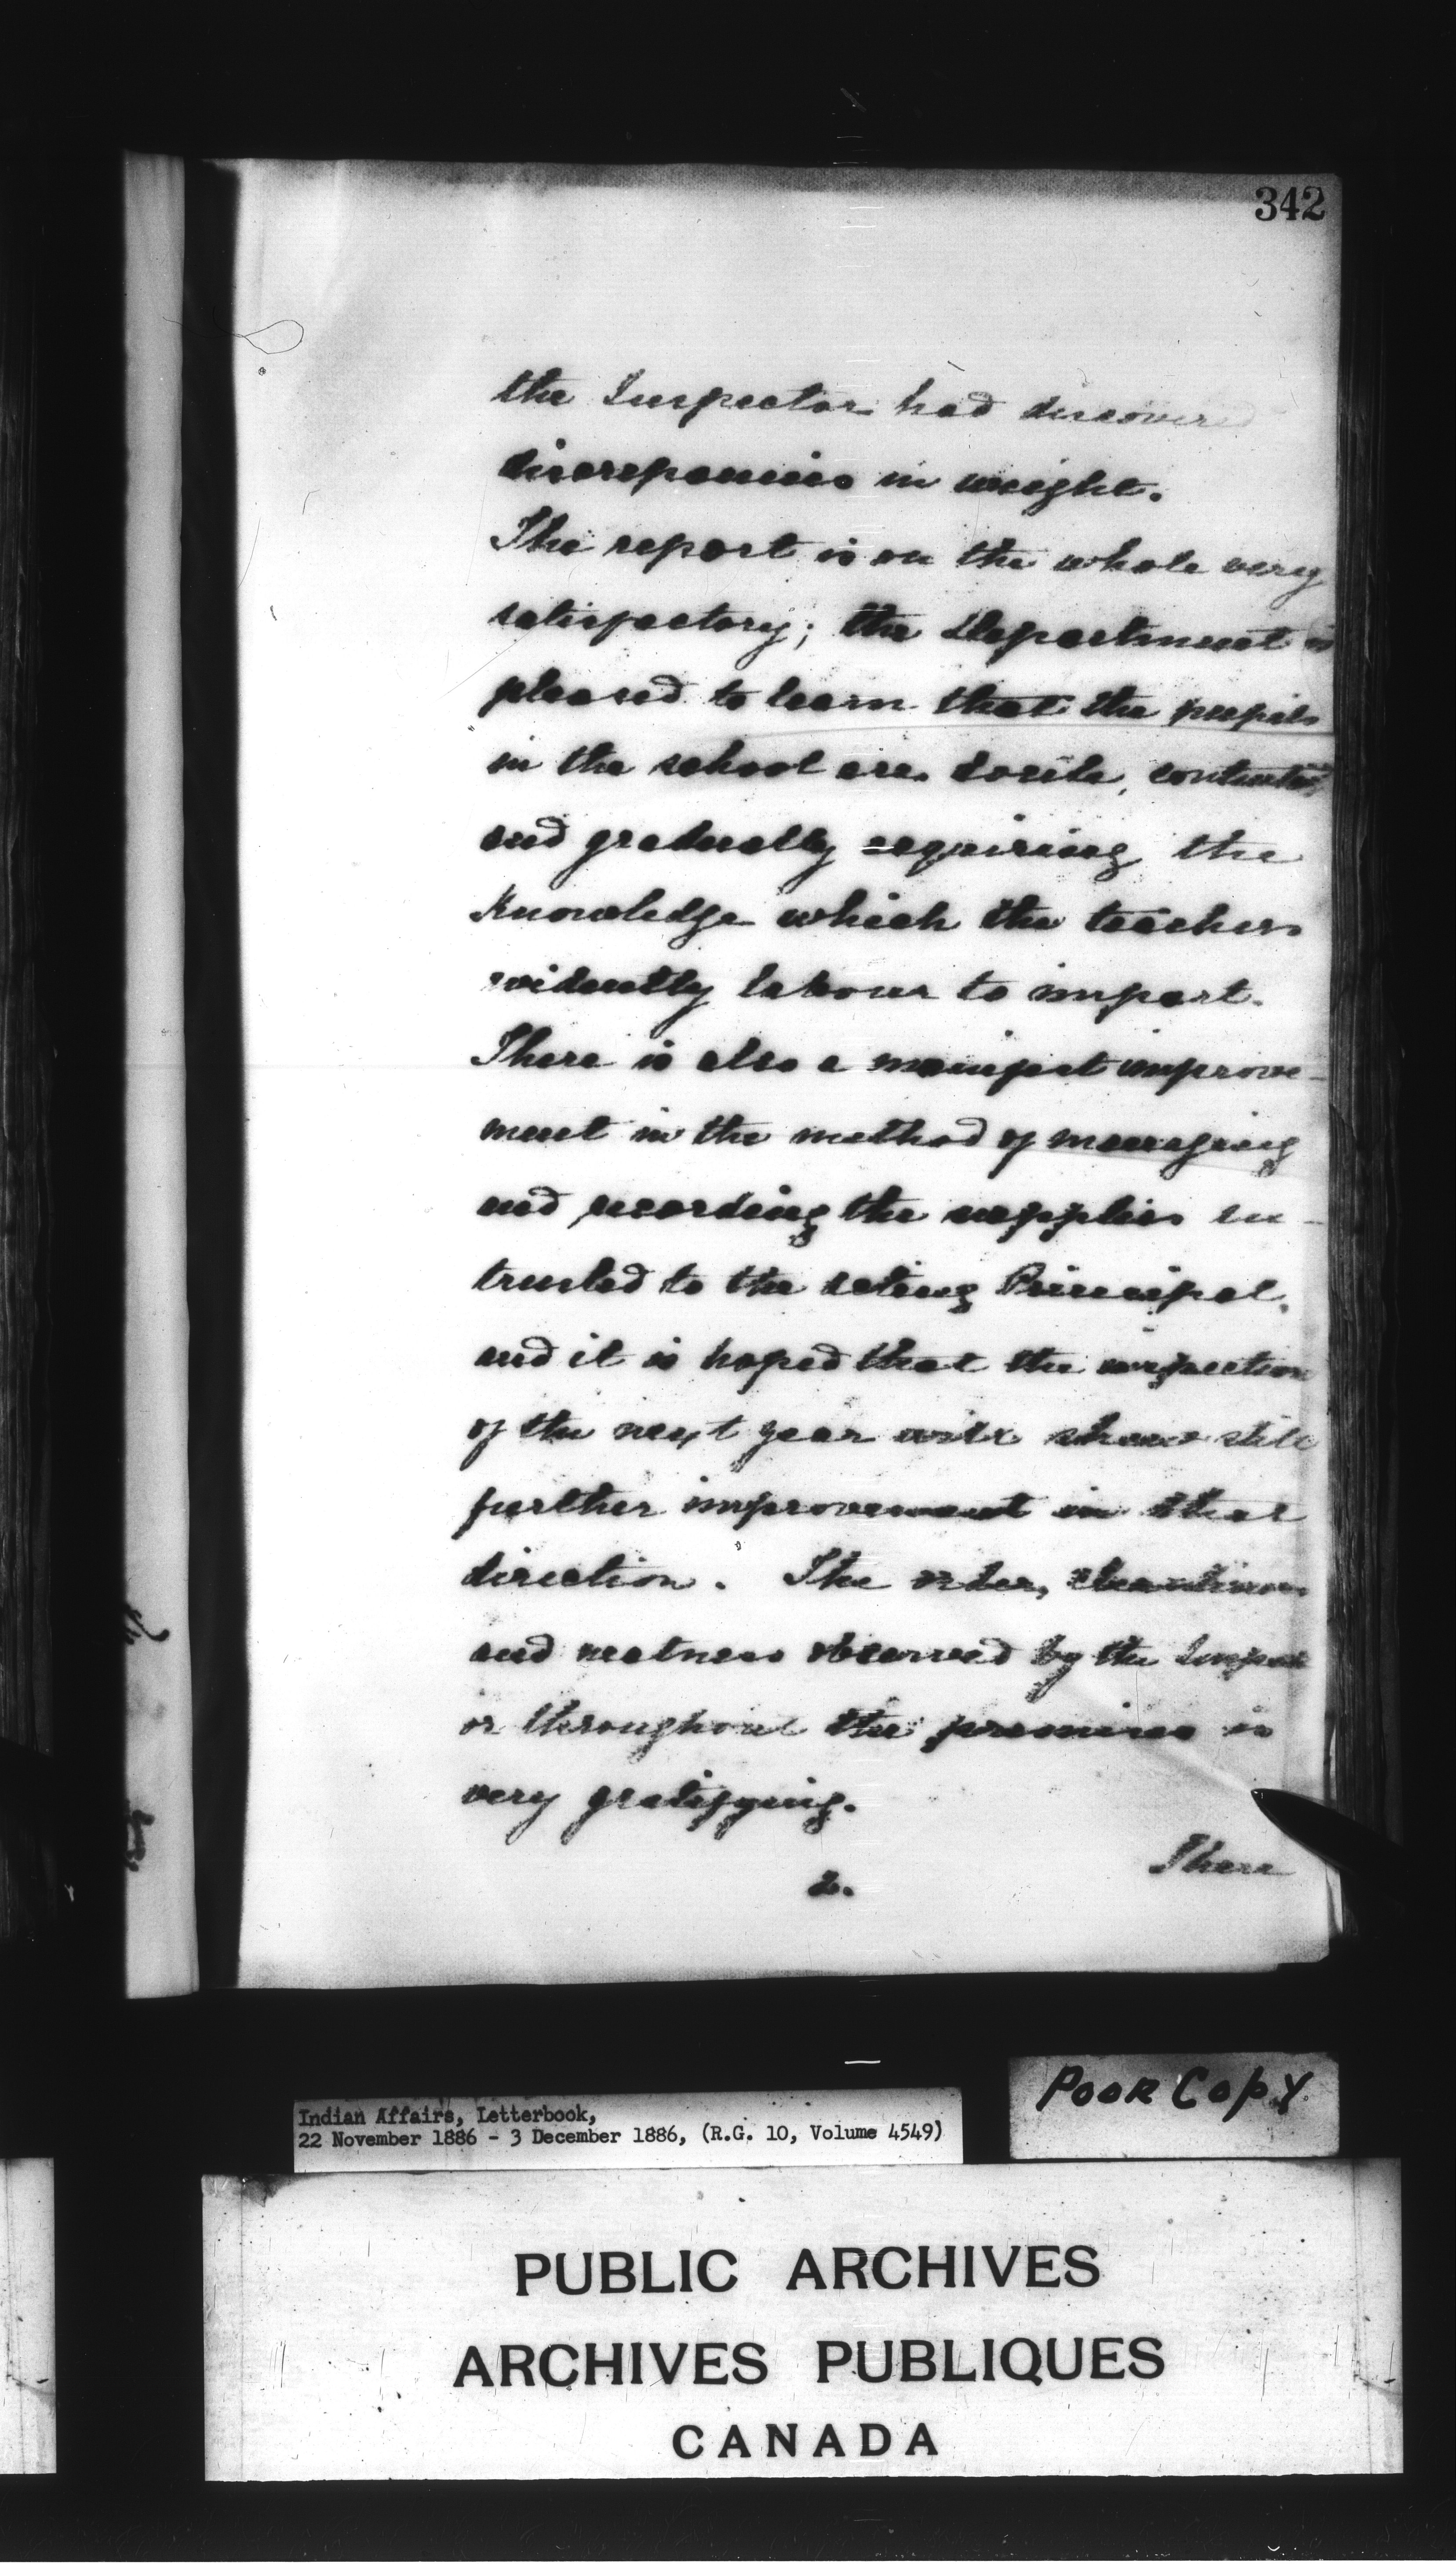 342
the Inspector had discovered
discrepancies in weight.
The report is on the whole very
satisfactory; the Department is
pleased to learn that the pupils
in the school are docile, contented,
and gradually acquiring the
knowledge which the teachers
evidently labour to impart.
There is also a manifest improve-
ment in the method of managing
and recording the supplies en-
trusted to the acting Principal,
and it is hoped that the inspection
of the next year will show still
further improvement in that
direction. The order, cleanliness
and neatness observed by the Inspect
or throughout the premises is
very gratifying.
There
2.
Poor Copy
Indian Affairs, Letterbook,
22 November 1886 - 3 December 1886, (R.G. 10, Volume 4549)
PUBLIC ARCHIVES
ARCHIVES PUBLIQUES
CANADA